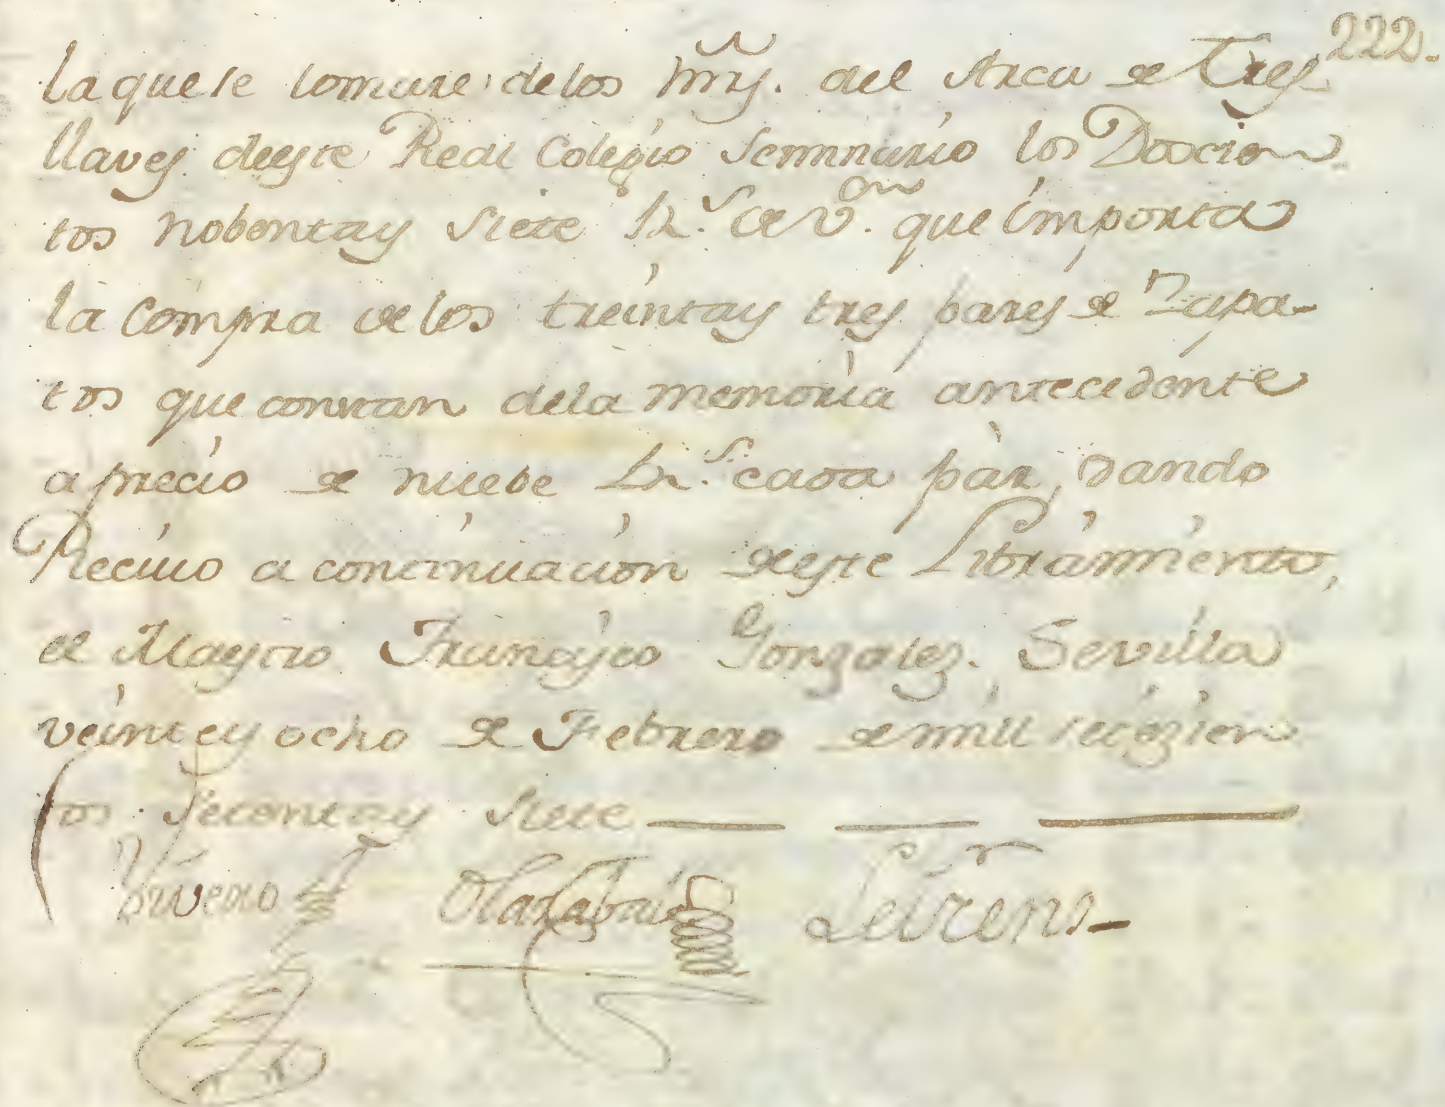 222.
la que se tomare de los mrs. del Arca de Tres
llaves deeste Real Colegio Seminario los Doscien
tos nobenta y siete Rs. de von. que importa
la compra de los treinta y tres pares de Zapa-
tos que constan de la memoria antecedente
a precio de nuebe Rs. cada par, dando
Recivo a continuacion de este Libramiento,
el Maestro Francisco Gonzalez. Sevilla
veinte y ocho de Febrero de mil setezien
tos setenta y siete
Rivero Olazabal